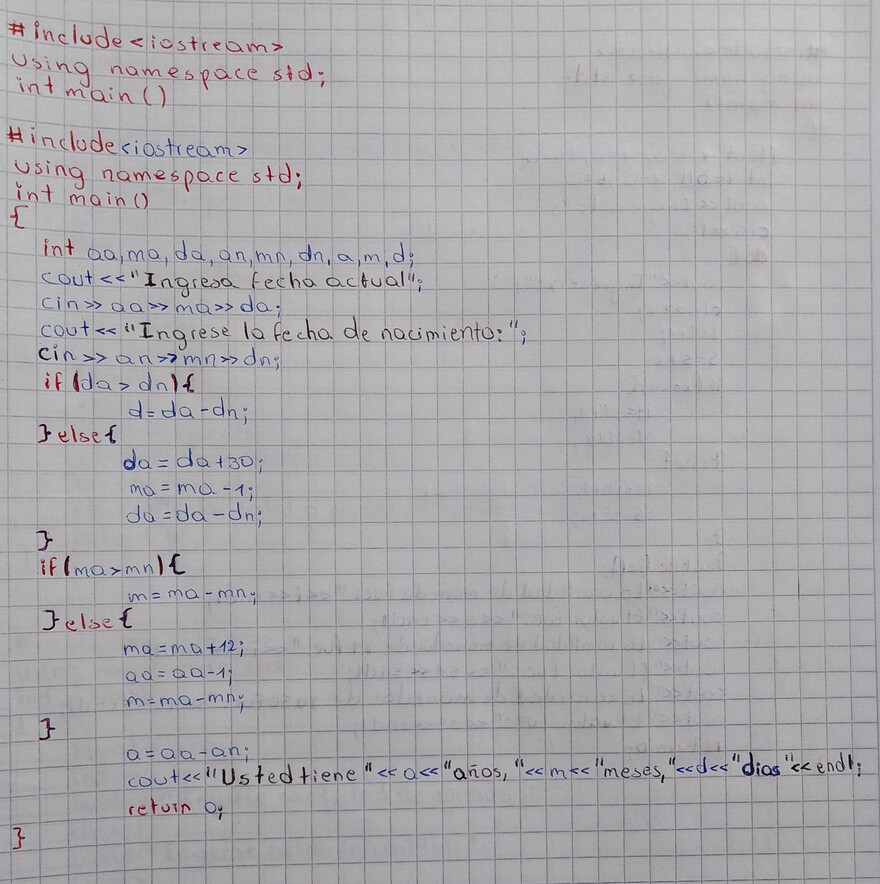 #include<iostream>
using namespace std;
int main()
#include<iostream>
using namespace std;
int main()
{
int aa,ma,da,an,mn,dn,a,m,d;
cout<<"Ingresa fecha actual";
cin>>aa>>ma>>da;
cout<<"Ingrese la fecha de nacimiento:";
cin>>an>>mn>>dn;
if(da>dn){
d=da-dn;
}else{
da=da+30;
ma=ma-1;
da=da-dn;
}
if(ma>mn){
m=ma-mn;
}else{
ma=ma+12;
aa=aa-1;
m=ma-mn;
}
a=aa-an;
cout<<"Usted tiene "<<a<<"años, "<<m<<"meses,"<<d<<"dias"<<endl;
return 0;
}